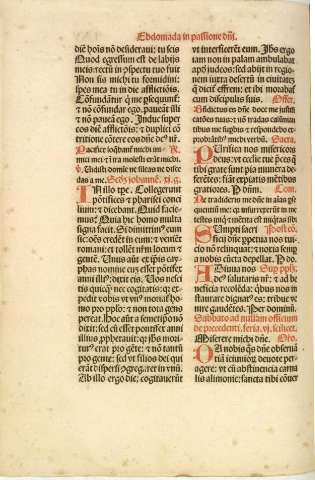 Ebdomada in passione dñi.
diẽ hoĩs nõ desideraui: tu scis
Quod egressum est de labijs
meis: rectũ in cõspectu tuo fuit
Non sis michi tu formidini:
spes mea tu in die afflictiõis.
Cõfundãtur q̃ me psequunt̃:
& nõ cõfundar ego: paueãt illi
& nõ paueã ego. Induc super
eos diẽ afflictiõis: & duplici cõ
tritione cõtere eos dñe de9 ñr.
Pacifice loq̃bant̃ michi ini
mici mei: & ĩ ira molesti erãt michi.
Vidisti domine ne sileas: ne disce
das a me. Scðz Johannẽ. xi. g.
In illo tpe. Collegerunt
põtifices et pharisei conci
lium: & dicebant. Quid facie
mus? Quia hic homo multa
signa facit. Si dimittim9 eum
sic: oẽs credẽt in eum: & veniẽt
romani: et tollẽt nr̃m locum &
gentẽ. Unus aũt ex ipsis cay
phas nomine cum esset põtifex
anni illi9: dixit eis. Uos nesci
tis quicq̃: nec cogitatis: quia ex
pedit vobis vt vn9 moriat̃ ho
mo pro pplo: & non tota gens
pereat. Hoc aũt a semetipso nõ
dixit: sed cũ esset põtifex anni
illius: pphetauit: q̃ ihs mori
tur9 erat pro gẽte: & nõ tantũ
pro gente: sed vt filios dei qui
erãt dispersi: cõgregaret in vnũ.
Ab illo ergo die: cogitauerũt
vt interficerẽt eum. Jhs ergo
iam non in palam ambulabat
apd judeos: sed abijt in regio
nem iuxta desertũ in ciuitatẽ
que dicit̃ effrem: et ibi morabat̃
cum discipulis suis. Offer.
Benedictus es dñe: doce me iustifi
cationes tuas: & nõ tradas calũmniã
tibus me supbis: & respondebo ex
probrãtib9 michi verbũ. Secre.
Purifica nos misericors
deus: vt ecclie tue p̃ces q̃
tibi grate sunt pia munera de
ferẽtes: fiãt expiatis mẽtibus
gratiores. P dñm. Com.
Ne tradideris me dñe in aĩas p̃se
quentiũ me: qm insurrexerũt in me
testes iniq̃ & mẽtita est iniq̃tas sibi.
Sumpti sacri Postcõ.
ficij dñe ppetua nos tui
cio nõ relinquat: & noxia semp
a nobis cũcta depellat. P do.
Adiuua nos Sup pplz
de9 salutaris nr̃: & ad be
neficia recolẽda: q̃bus nos in
staurare dignat9 es: tribue ve
nire gaudẽtes. Per dominũ.
Sabbato ad nullam officium
de precedenti. feria. vj. scilicet.
Miserere michi dñe. Oro.
Da nobis q̃s dñe obserua
tiã ieiunioruz deuote per
agere: vt cũ abstinencia carna
lis alimonie: sancta tibi cõuer